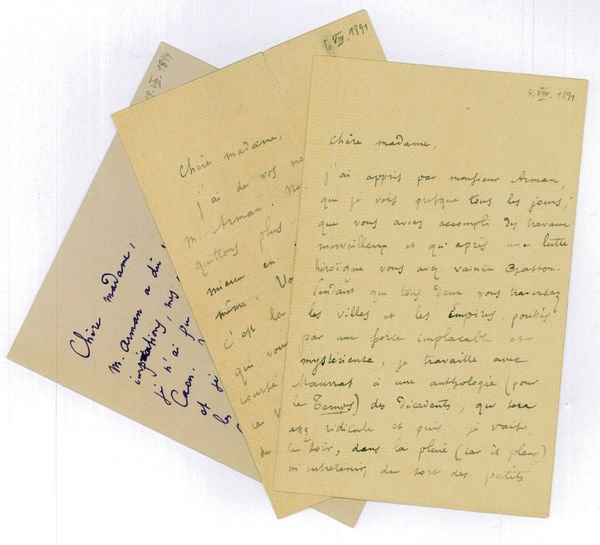 4. VIII. 1891
Chère madame,
j'ai appris par monsieur Arman,
que je vois presque tous les jours,
que vous aviez accompli des travaux
merveilleux et qu'après une lutte
héroïque vous avez vaincu
Pendant que tous deux vous traversez
les villes et les Empires, poussés
par une force implacable et
mystérieuse, je travaille avec
Maurras à une anthologie (pour
le Temps) des Décadents, qui sera
assez ridicule et puis je vais
le soir, dans la pluie (car il pleut)
m'entretenir, du sort des petits
VIII. 1891
Chère madame,
j'ai de vos
M. Arman.
quittons plus
mieux en
même.
c'est la
qui vous
courte
le
de
VIII. 1894
Chère madame,
M. Arman a dû
je n'ai pu
Caen.
et je
les